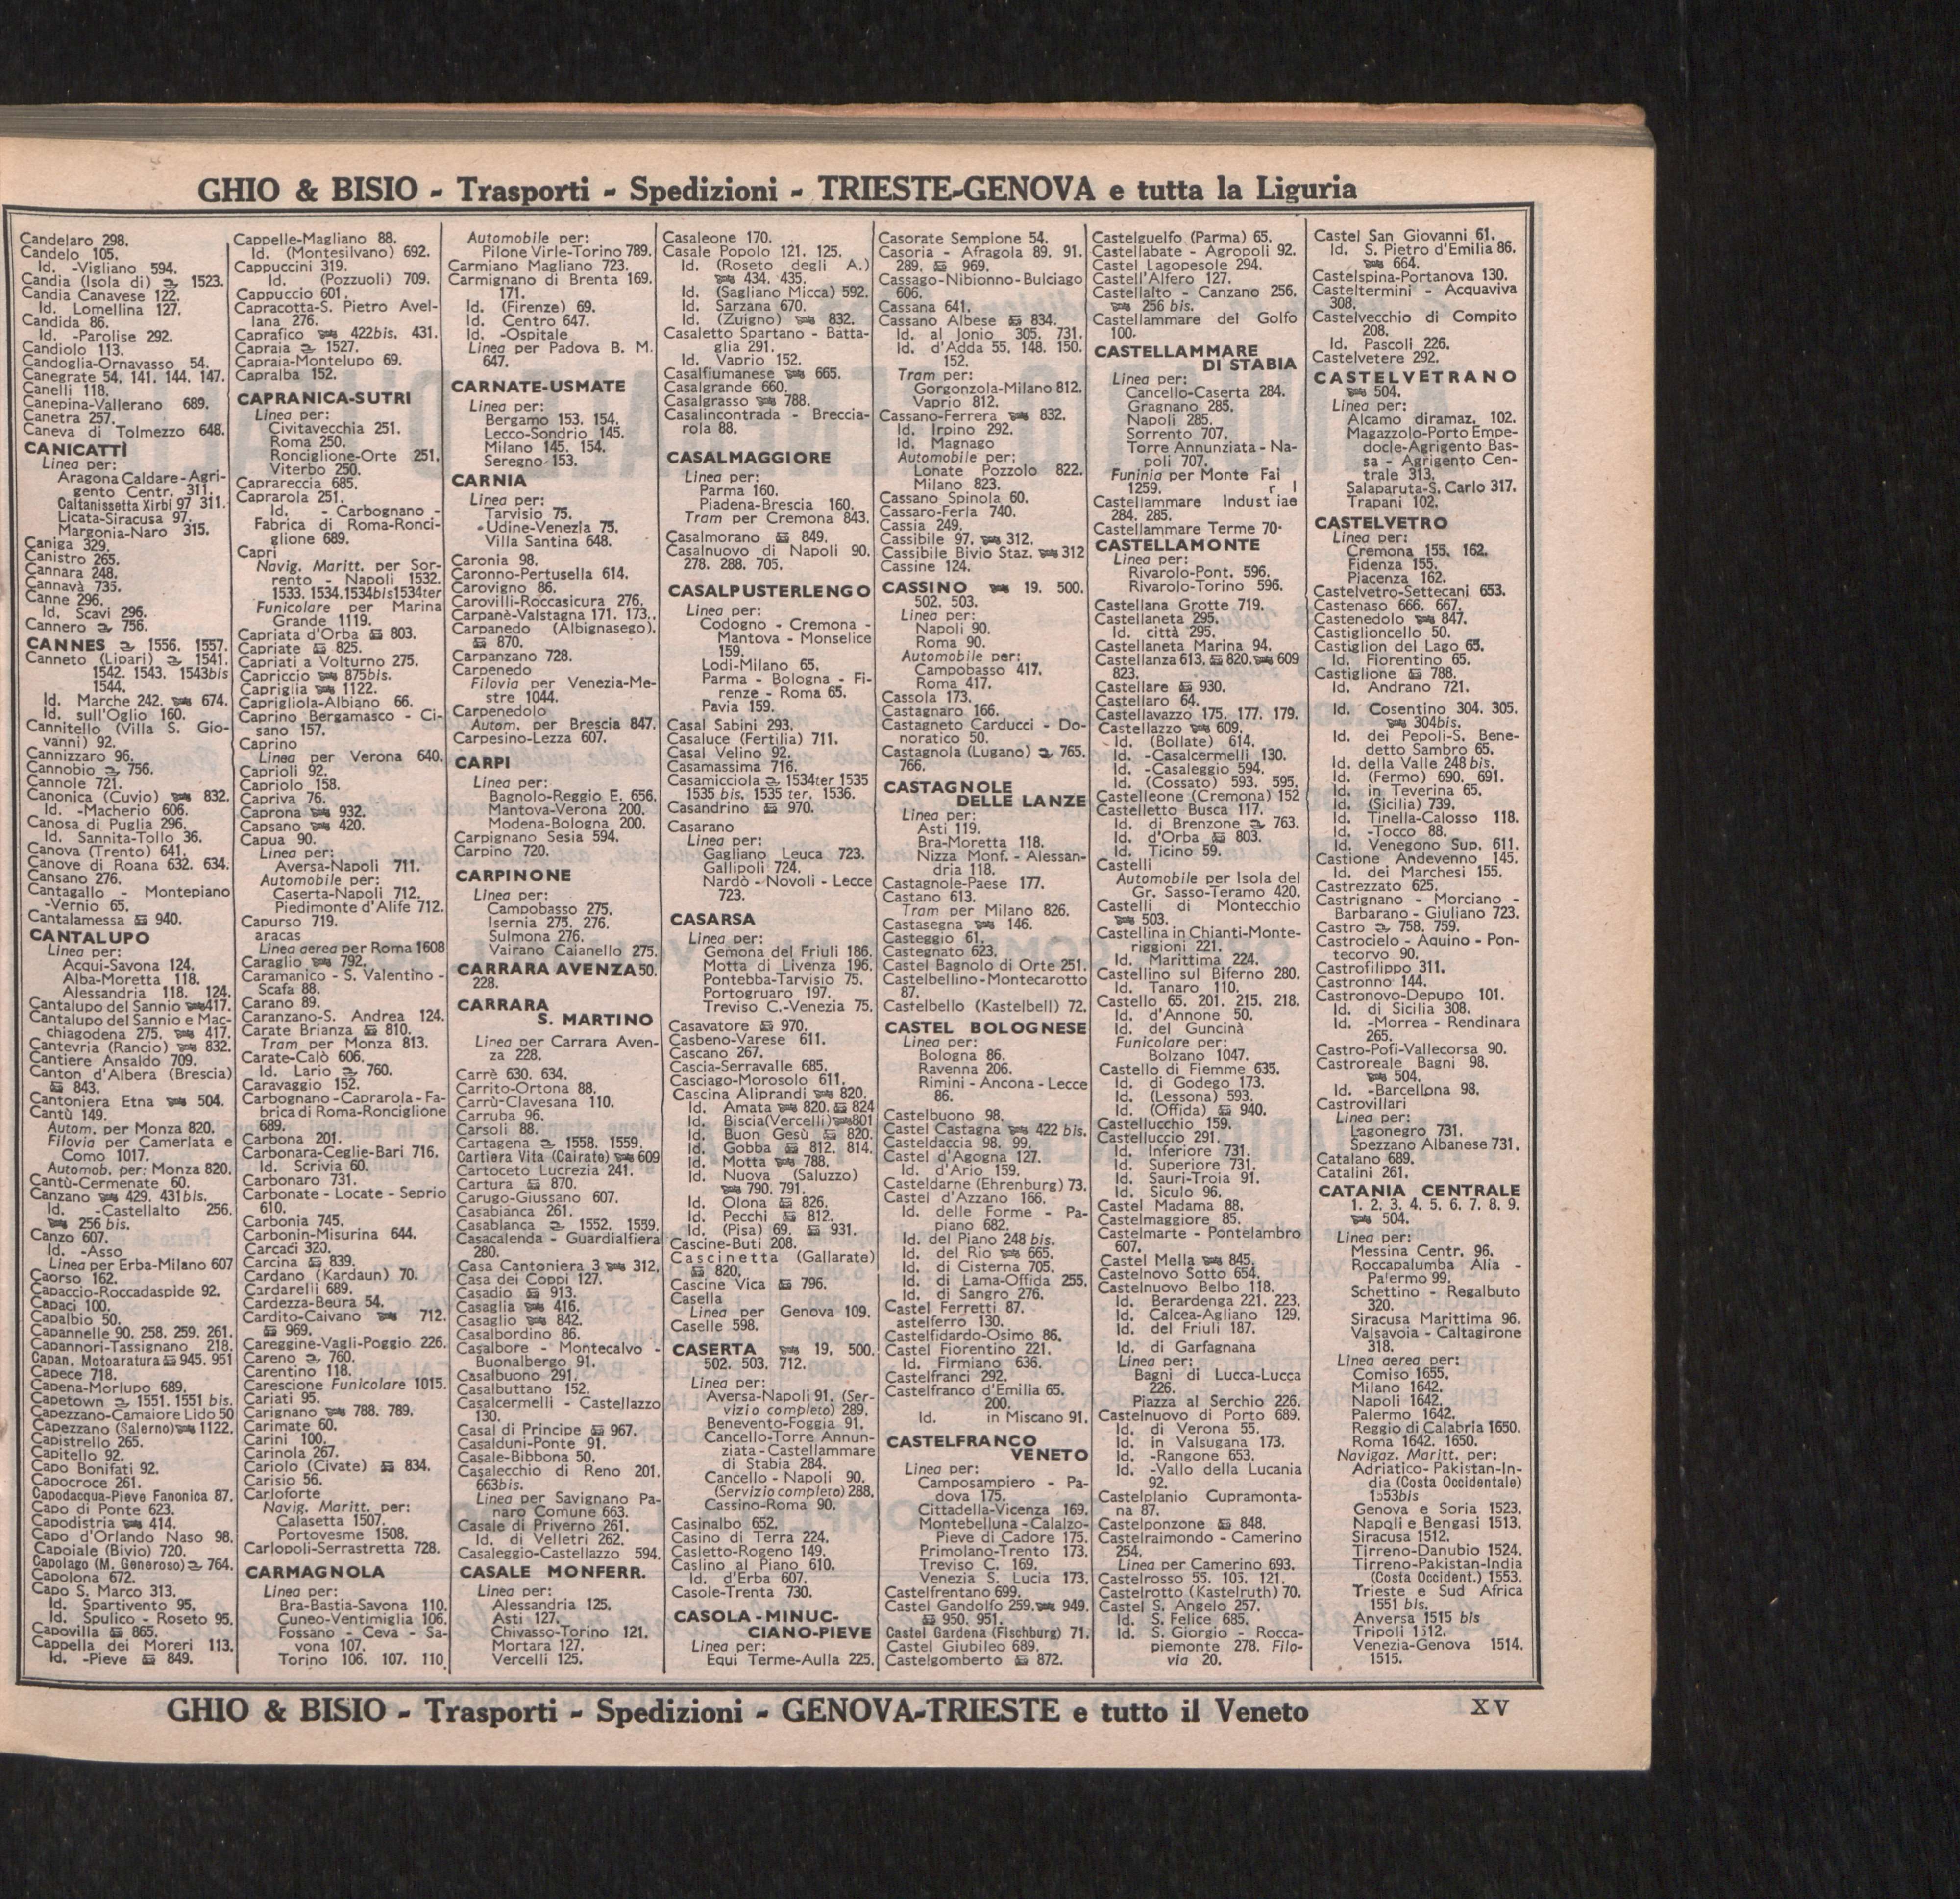 GHIO & BISIO - Trasporti - Spedizioni - TRIESTE-GENOVA e tutta la Liguria
Candelaro 298.
Candelo 105.
Id. -Vigliano 594.
Candia (Isola di) 1523.
Candia Canavese 122.
Id. Lomellina 127.
Candida 86.
Id. -Parolise 292.
Candiolo 113.
Candoglia-Ornavasso 54.
Canegrate 54. 141. 144. 147.
Canelli 118.
Canepina-Vallerano 689.
Canetra 257.
Caneva di Tolmezzo 648.
CANICATTÌ
Linea per:
Aragona Caldare-Agri-
gento Centr. 311.
Caltanissetta Xirbi 97 311.
Licata-Siracusa 97.
Margonia-Naro 315.
Caniga 329.
Canistro 265.
Cannara 248.
Cannavà 735.
Canne 296.
Id. Scavi 296.
Cannero 756.
CANNES 1556. 1557.
Canneto (Lipari) 1541.
1542. 1543. 1543bis
1544.
Id. Marche 242. 674.
Id. sull'Oglio 160.
Cannitello (Villa S. Gio-
vanni) 92.
Cannizzaro 96.
Cannobio 756.
Cannole 721.
Canonica (Cuvio) 832.
Id. -Macherio 606.
Canosa di Puglia 296.
Id. Sannita-Tollo 36.
Canova (Trento) 641.
Canove di Roana 632. 634.
Cansano 276.
Cantagallo - Montepiano
-Vernio 65.
Cantalamessa 940.
CANTALUPO
Linea per:
Acqui-Savona 124.
Alba-Moretta 118.
Alessandria 118. 124.
Cantalupo del Sannio 417.
Cantalupo del Sannio e Mac-
chiagodena 275. 417.
Cantevria (Rancio) 832.
Cantiere Ansaldo 709.
Canton d'Albera (Brescia)
843.
Cantoniera Etna 504.
Cantù 149.
Autom. per Monza 820.
Filovia per Camerlata e
Como 1017.
Automob. per: Monza 820.
Cantù-Cermenate 60.
Canzano 429. 431bis.
Id. -Castellalto 256.
256 bis.
Canzo 607.
Id. -Asso
Linea per Erba-Milano 607
Caorso 162.
Capaccio-Roccadaspide 92.
Capaci 100.
Capalbio 50.
Capannelle 90. 258. 259. 261.
Capannori-Tassignano 218.
Capan. Motoaratura 945. 951
Capece 718.
Capena-Morlupo 689.
Capetown 1551. 1551 bis.
Capezzano-Camaiore Lido 50
Capezzano (Salerno) 1122.
Capistrello 265.
Capitello 92.
Capo Bonifati 92.
Capocroce 261.
Capodacqua-Pieve Fanonica 87.
Capo di Ponte 623.
Capodistria 414.
Capo d'Orlando Naso 98.
Capoiale (Bivio) 720.
Capolago (M. Generoso) 764.
Capolona 672.
Capo S. Marco 313.
Id. Spartivento 95.
Id. Spulico - Roseto 95.
Capovilla 865.
Cappella dei Moreri 113.
Id. -Pieve 849.
Cappelle-Magliano 88.
Id. (Montesilvano) 692.
Cappuccini 319.
Id. (Pozzuoli) 709.
Cappuccio 601.
Capracotta-S. Pietro Avel-
lana 276.
Caprafico 422bis. 431.
Capraia 1527.
Capraia-Montelupo 69.
Capralba 152.
CAPRANICA-SUTRI
Linea per:
Civitavecchia 251.
Roma 250.
Ronciglione-Orte 251.
Viterbo 250.
Caprareccia 685.
Caprarola 251.
Id. - Carbognano -
Fabrica di Roma-Ronci-
glione 689.
Capri
Navig. Maritt. per Sor-
rento - Napoli 1532.
1533. 1534.1534bis1534ter
Funicolare per Marina
Grande 1119.
Capriata d'Orba 803.
Capriate 825.
Capriati a Volturno 275.
Capriccio 875bis.
Capriglia 1122.
Caprigliola-Albiano 66.
Caprino Bergamasco - Ci-
sano 157.
Caprino
Linea per Verona 640.
Caprioli 92.
Capriolo 158.
Capriva 76.
Caprona 932.
Capsano 420.
Capua 90.
Linea per:
Aversa-Napoli 711.
Automobile per:
Caserta-Napoli 712.
Piedimonte d'Alife 712.
Capurso 719.
aracas
Linea aerea per Roma 1608
Caraglio 792.
Caramanico - S. Valentino -
Scafa 88.
Carano 89.
Caranzano-S. Andrea 124.
Carate Brianza 810.
Tram per Monza 813.
Carate-Calò 606.
Id. Lario 760.
Caravaggio 152.
Carbognano-Caprarola-Fa-
brica di Roma-Ronciglione
689.
Carbona 201.
Carbonara-Ceglie-Bari 716.
Id. Scrivia 60.
Carbonaro 731.
Carbonate - Locate - Seprio
610.
Carbonia 745.
Carbonin-Misurina 644.
Carcaci 320.
Carcina 839.
Cardano (Kardaun) 70.
Cardarelli 689.
Cardezza-Beura 54.
Cardito-Caivano 712.
969.
Careggine-Vagli-Poggio 226.
Careno 760.
Carentino 118.
Carescione Funicolare 1015.
Cariati 95.
Carignano 788. 789.
Carimate 60.
Carini 100.
Carinola 267.
Cariolo (Civate) 834.
Carisio 56.
Carloforte
Navig. Maritt. per:
Calasetta 1507.
Portovesme 1508.
Carlopoli-Serrastretta 728.
CARMAGNOLA
Linea per:
Bra-Bastia-Savona 110.
Cuneo-Ventimiglia 106.
Fossano - Ceva - Sa-
vona 107.
Torino 106. 107. 110.
Automobile per:
Pilone Virle-Torino 789.
Carmiano Magliano 723.
Carmignano di Brenta 169.
171.
Id. (Firenze) 69.
Id. Centro 647.
Id. -Ospitale
Linea per Padova B. M.
647.
CARNATE-USMATE
Linea per:
Bergamo 153. 154.
Lecco-Sondrio 145.
Milano 145. 154.
Seregno 153.
CARNIA
Linea per:
Tarvisio 75.
Udine-Venezia 75.
Villa Santina 648.
Caronia 98.
Caronno-Pertusella 614.
Carovigno 86.
Carovilli-Roccasicura 276.
Carpanè-Valstagna 171. 173..
Carpanedo (Albignasego).
870.
Carpanzano 728.
Carpenedo
Filovia per Venezia-Me-
stre 1044.
Carpenedolo
Autom. per Brescia 847.
Carpesino-Lezza 607.
CARPI
Linea per:
Bagnolo-Reggio E. 656.
Mantova-Verona 200.
Modena-Bologna 200.
Carpignano Sesia 594.
Carpino 720.
CARPINONE
Linea per:
Campobasso 275.
Isernia 275. 276.
Sulmona 276.
Vairano Caianello 275.
CARRARA AVENZA 50.
228.
CARRARA
S. MARTINO
Linea per Carrara Aven-
za 228.
Carrè 630. 634.
Carrito-Ortona 88.
Carrù-Clavesana 110.
Carruba 96.
Carsoli 88.
Cartagena 1558. 1559.
Cartiera Vita (Cairate) 609
Cartoceto Lucrezia 241.
Cartura 870.
Carugo-Giussano 607.
Casabianca 261.
Casablanca 1552. 1559.
Casacalenda - Guardialfiera
280.
Casa Cantoniera 3 312.
Casa dei Coppi 127.
Casadio 913.
Casaglia 416.
Casaglio 842.
Casalbordino 86.
Casalbore - Montecalvo -
Buonalbergo 91.
Casalbuono 291.
Casalbuttano 152.
Casalcermelli - Castellazzo
130.
Casal di Principe 967.
Casalduni-Ponte 91.
Casale-Bibbona 50.
Casalecchio di Reno 201.
663bis.
Linea per Savignano Pa-
naro Comune 663.
Casale di Priverno 261.
Id. di Velletri 262.
Casaleggio-Castellazzo 594.
CASALE MONFERR.
Linea per:
Alessandria 125.
Asti 127.
Chivasso-Torino 121.
Mortara 127.
Vercelli 125.
Casaleone 170.
Casale Popolo 121. 125.
Id. (Roseto degli A.)
434. 435.
Id. (Sagliano Micca) 592.
Id. Sarzana 670.
Id. (Zuigno) 832.
Casaletto Spartano - Batta-
glia 291.
Id. Vaprio 152.
Casalfiumanese 665.
Casalgrande 660.
Casalgrasso 788.
Casalincontrada - Breccia-
rola 88.
CASALMAGGIORE
Linea per:
Parma 160.
Piadena-Brescia 160.
Tram per Cremona 843.
Casalmorano 849.
Casalnuovo di Napoli 90.
278. 288. 705.
CASALPUSTERLENGO
Linea per:
Codogno - Cremona -
Mantova - Monselice
159.
Lodi-Milano 65.
Parma - Bologna - Fi-
renze - Roma 65.
Pavia 159.
Casal Sabini 293.
Casaluce (Fertilia) 711.
Casal Velino 92.
Casamassima 716.
Casamicciola 1534ter 1535
1535 bis. 1535 ter. 1536.
Casandrino 970.
Casarano
Linea per:
Gagliano Leuca 723.
Gallipoli 724.
Nardò - Novoli - Lecce
723.
CASARSA
Linea per:
Gemona del Friuli 186.
Motta di Livenza 196.
Pontebba-Tarvisio 75.
Portogruaro 197.
Treviso C.-Venezia 75.
Casavatore 970.
Casbeno-Varese 611.
Cascano 267.
Cascia-Serravalle 685.
Casciago-Morosolo 611.
Cascina Aliprandi 820.
Id. Amata 820. 824
Id. Biscia(Vercelli) 801
Id. Buon Gesù 820.
Id. Gobba 812. 814.
Id. Motta 788.
Id. Nuova (Saluzzo)
790. 791.
Id. Olona 826.
Id. Pecchi 812.
Id. (Pisa) 69. 931.
Cascine-Buti 208.
Cascinetta (Gallarate)
820.
Cascine Vica 796.
Casella
Linea per Genova 109.
Caselle 598.
CASERTA 19. 500.
502. 503. 712.
Linea per:
Aversa-Napoli 91. (Ser-
vizio completo) 289.
Benevento-Foggia 91.
Cancello-Torre Annun-
ziata-Castellammare
di Stabia 284.
Cancello - Napoli 90.
(Servizio completo) 288.
Cassino-Roma 90.
Casinalbo 652.
Casino di Terra 224.
Casletto-Rogeno 149.
Caslino al Piano 610.
Id. d'Erba 607.
Casole-Trenta 730.
CASOLA-MINUC-
CIANO-PIEVE
Linea per:
Equi Terme-Aulla 225.
Casorate Sempione 54.
Casoria - Afragola 89. 91.
289. 969.
Cassago-Nibionno-Bulciago
606.
Cassana 641.
Cassano Albese 834.
Id. al Jonio 305. 731.
Id. d'Adda 55. 148. 150.
152.
Tram per:
Gorgonzola-Milano 812.
Vaprio 812.
Cassano-Ferrera 832.
Id. Irpino 292.
Id. Magnago
Automobile per:
Lonate Pozzolo 822.
Milano 823.
Cassano Spinola 60.
Cassaro-Ferla 740.
Cassia 249.
Cassibile 97. 312.
Cassibile Bivio Staz. 312
Cassine 124.
CASSINO 19. 500.
502. 503.
Linea per:
Napoli 90.
Roma 90.
Automobile per:
Campobasso 417.
Roma 417.
Cassola 173.
Castagnaro 166.
Castagneto Carducci - Do-
noratico 50.
Castagnola (Lugano) 765.
766.
CASTAGNOLE
DELLE LANZE
Linea per:
Asti 119.
Bra-Moretta 118.
Nizza Monf. - Alessan-
dria 118.
Castagnole-Paese 177.
Castano 613.
Tram per Milano 826.
Castasegna 146.
Casteggio 61.
Castegnato 623.
Castel Bagnolo di Orte 251.
Castelbellino-Montecarotto
87.
Castelbello (Kastelbell) 72.
CASTEL BOLOGNESE
Linea per:
Bologna 86.
Ravenna 206.
Rimini - Ancona - Lecce
86.
Castelbuono 98.
Castel Castagna 422 bis.
Casteldaccia 98. 99.
Castel d'Agogna 127.
Id. d'Ario 159.
Casteldarne (Ehrenburg) 73.
Castel d'Azzano 166.
Id. delle Forme - Pa-
piano 682.
Id. del Piano 248 bis.
Id. del Rio 665.
Id. di Cisterna 705.
Id. di Lama-Offida 255.
Id. di Sangro 276.
Castel Ferretti 87.
astelferro 130.
Castelfidardo-Osimo 86.
Castel Fiorentino 221.
Id. Firmiano 636.
Castelfranci 292.
Castelfranco d'Emilia 65.
200.
Id. in Miscano 91.
CASTELFRANCO
VENETO
Linea per:
Camposampiero - Pa-
dova 175.
Cittadella-Vicenza 169.
Montebelluna-Calalzo-
Pieve di Cadore 175.
Primolano-Trento 173.
Treviso C. 169.
Venezia S. Lucia 173.
Castelfrentano 699.
Castel Gandolfo 259. 949.
950. 951.
Castel Gardena (Fischburg) 71.
Castel Giubileo 689.
Castelgomberto 872.
Castelguelfo (Parma) 65.
Castellabate - Agropoli 92.
Castel Lagopesole 294.
Castell'Alfero 127.
Castellalto - Canzano 256.
256 bis.
Castellammare del Golfo
100.
CASTELLAMMARE
DI STABIA
Linea per:
Cancello-Caserta 284.
Gragnano 285.
Napoli 285.
Sorrento 707.
Torre Annunziata - Na-
poli 707.
Funinia per Monte Fai
1259. r l
Castellammare Indust iae
284. 285.
Castellammare Terme 70·
CASTELLAMONTE
Linea per:
Rivarolo-Pont. 596.
Rivarolo-Torino 596.
Castellana Grotte 719.
Castellaneta 295.
Id. città 295.
Castellaneta Marina 94.
Castellanza 613. 820. 609
823.
Castellare 930.
Castellaro 64.
Castellavazzo 175. 177. 179.
Castellazzo 609.
Id. (Bollate) 614.
Id. -Casalcermelli 130.
Id. -Casaleggio 594.
Id. (Cossato) 593. 595.
Castelleone (Cremona) 152
Castelletto Busca 117.
Id. di Brenzone 763.
Id. d'Orba 803.
Id. Ticino 59.
Castelli
Automobile per Isola del
Gr. Sasso-Teramo 420.
Castelli di Montecchio
503.
Castellina in Chianti-Monte-
riggioni 221.
Id. Marittima 224.
Castellino sul Biferno 280.
Id. Tanaro 110.
Castello 65. 201. 215. 218.
Id. d'Annone 50.
Id. del Guncinà
Funicolare per:
Bolzano 1047.
Castello di Fiemme 635.
Id. di Godego 173.
Id. (Lessona) 593.
Id. (Offida) 940.
Castellucchio 159.
Castelluccio 291.
Id. Inferiore 731.
Id. Superiore 731.
Id. Sauri-Troia 91.
Id. Siculo 96.
Castel Madama 88.
Castelmaggiore 85.
Castelmarte - Pontelambro
607.
Castel Mella 845.
Castelnovo Sotto 654.
Castelnuovo Belbo 118.
Id. Berardenga 221. 223.
Id. Calcea-Agliano 129.
Id. del Friuli 187.
Id. di Garfagnana
Linea per:
Bagni di Lucca-Lucca
226.
Piazza al Serchio 226.
Castelnuovo di Porto 689.
Id. di Verona 55.
Id. in Valsugana 173.
Id. -Rangone 653.
Id. -Vallo della Lucania
92.
Castelplanio Cupramonta-
na 87.
Castelponzone 848.
Castelraimondo - Camerino
254.
Linea per Camerino 693.
Castelrosso 55. 105. 121.
Castelrotto (Kastelruth) 70.
Castel S. Angelo 257.
Id. S. Felice 685.
Id. S. Giorgio - Rocca-
piemonte 278. Filo-
via 20.
Castel San Giovanni 61.
Id. S. Pietro d'Emilia 86.
664.
Castelspina-Portanova 130.
Casteltermini - Acquaviva
308.
Castelvecchio di Compito
208.
Id. Pascoli 226.
Castelvetere 292.
CASTELVETRANO
504.
Linea per:
Alcamo diramaz. 102.
Magazzolo-Porto Empe-
docle-Agrigento Bas-
sa - Agrigento Cen-
trale 313.
Salaparuta-S. Carlo 317.
Trapani 102.
CASTELVETRO
Linea per:
Cremona 155. 162.
Fidenza 155.
Piacenza 162.
Castelvetro-Settecani 653.
Castenaso 666. 667.
Castenedolo 847.
Castiglioncello 50.
Castiglion del Lago 65.
Id. Fiorentino 65.
Castiglione 788.
Id. Andrano 721.
Id. Cosentino 304. 305.
304bis.
Id. dei Pepoli-S. Bene-
detto Sambro 65.
Id. della Valle 248 bis.
Id. (Fermo) 690. 691.
Id. in Teverina 65.
Id. (Sicilia) 739.
Id. Tinella-Calosso 118.
Id. -Tocco 88.
Id. Venegono Sup. 611.
Castione Andevenno 145.
Id. dei Marchesi 155.
Castrezzato 625.
Castrignano - Morciano -
Barbarano - Giuliano 723.
Castro 758. 759.
Castrocielo - Aquino - Pon-
tecorvo 90.
Castrofilippo 311.
Castronno 144.
Castronovo-Depupo 101.
Id. di Sicilia 308.
Id. -Morrea - Rendinara
265.
Castro-Pofi-Vallecorsa 90.
Castroreale Bagni 98.
504.
Id. -Barcellona 98.
Castrovillari
Linea per:
Lagonegro 731.
Spezzano Albanese 731.
Catalano 689.
Catalini 261.
CATANIA CENTRALE
1. 2. 3. 4. 5. 6. 7. 8. 9.
504.
Linea per:
Messina Centr. 96.
Roccapalumba Alia -
Palermo 99.
Schettino - Regalbuto
320.
Siracusa Marittima 96.
Valsavoia - Caltagirone
318.
Linea aerea per:
Comiso 1655.
Milano 1642.
Napoli 1642.
Palermo 1642.
Reggio di Calabria 1650.
Roma 1642. 1650.
Navigaz. Maritt. per:
Adriatico-Pakistan-In-
dia (Costa Occidentale)
1553bis
Genova e Soria 1523.
Napoli e Bengasi 1513.
Siracusa 1512.
Tirreno-Danubio 1524.
Tirreno-Pakistan-India
(Costa Occident.) 1553.
Trieste e Sud Africa
1551 bis.
Anversa 1515 bis
Tripoli 1512.
Venezia-Genova 1514.
1515.
GHIO & BISIO - Trasporti - Spedizioni - GENOVA-TRIESTE e tutto il Veneto
XV